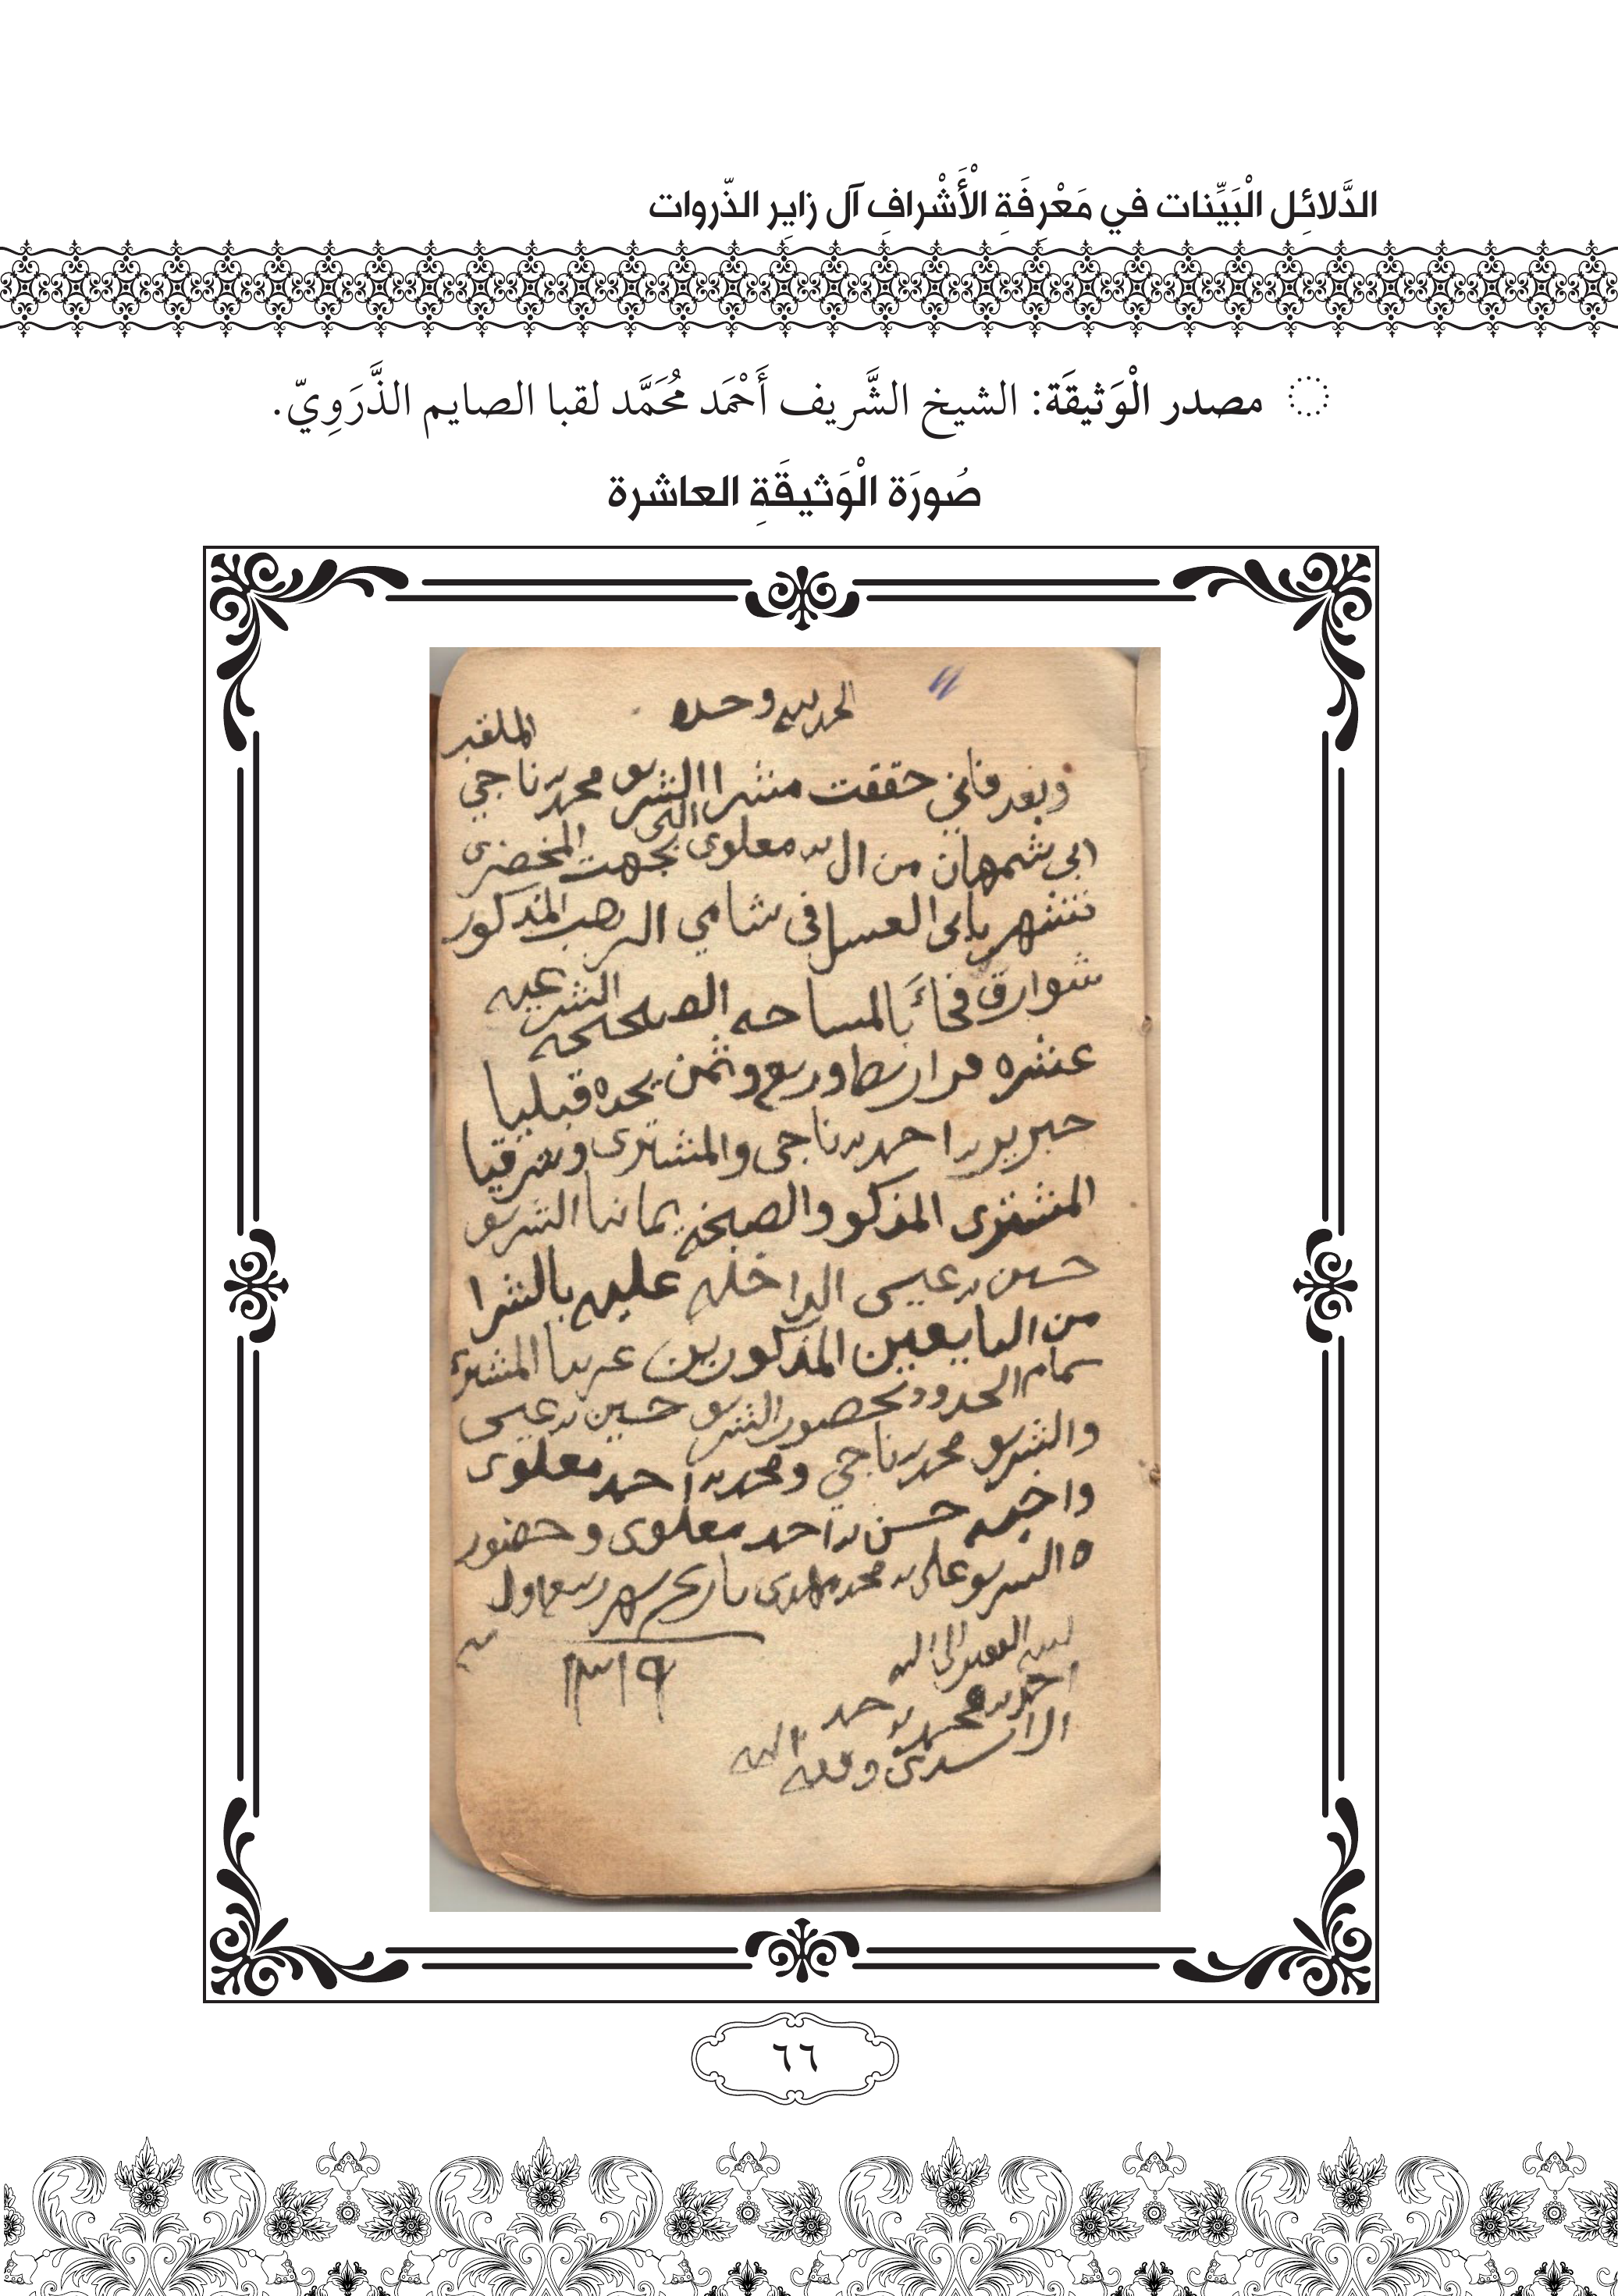 الدَّلائِل الْبَيِّنات في مَعْرِفَةِ الْأَشْرافِ آل زايِر الذّروات
مصدر الْوَثيقَة: الشيخ الشَّريف أَحْمَد مُحَمَّد لقبا الصايم الذَّرَوِيّ.
صُورَة الْوَثيقَةِ العاشرة
الحمد لله وحده
وبعد فاني حققت مشرا الشريف محمد بن ناجي الملقب
ابي شمهان من ال معلوي التي بجهت المخضري
تشتهر بابي العسل في شامي المذكور
شوارق بالمساحه الصحيحه الشرعيه
عشره وربع وثمن يحده قبليا
احمد بن ناجي والمشتري وشرقيا
المشتري المذكور يمانيا الشريف
حسين بن عيسى الداخله عليه بالشرا
من البايعين المذكورين غربيا المشتري
تمام الحدود بحضور الشريف حسين بن عيسى
والشريف محمد بن ناجي ومحمد بن احمد معلوي
واخيه حسن بن احمد معلوي وحضور
ه الشريف علي بن محمد مهدي تاريخ شهر ربيع اول
١٣١٩
الفقير الى الله
احمد بن محمد بن حمد
وفقه الله
٦٦